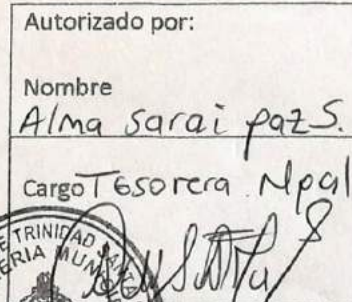 Autorizado por:
Nombre
Alma Sarai paz S.
Cargo Tesorera Mpal
E TRINIDAD SANTA
ERIA MUN